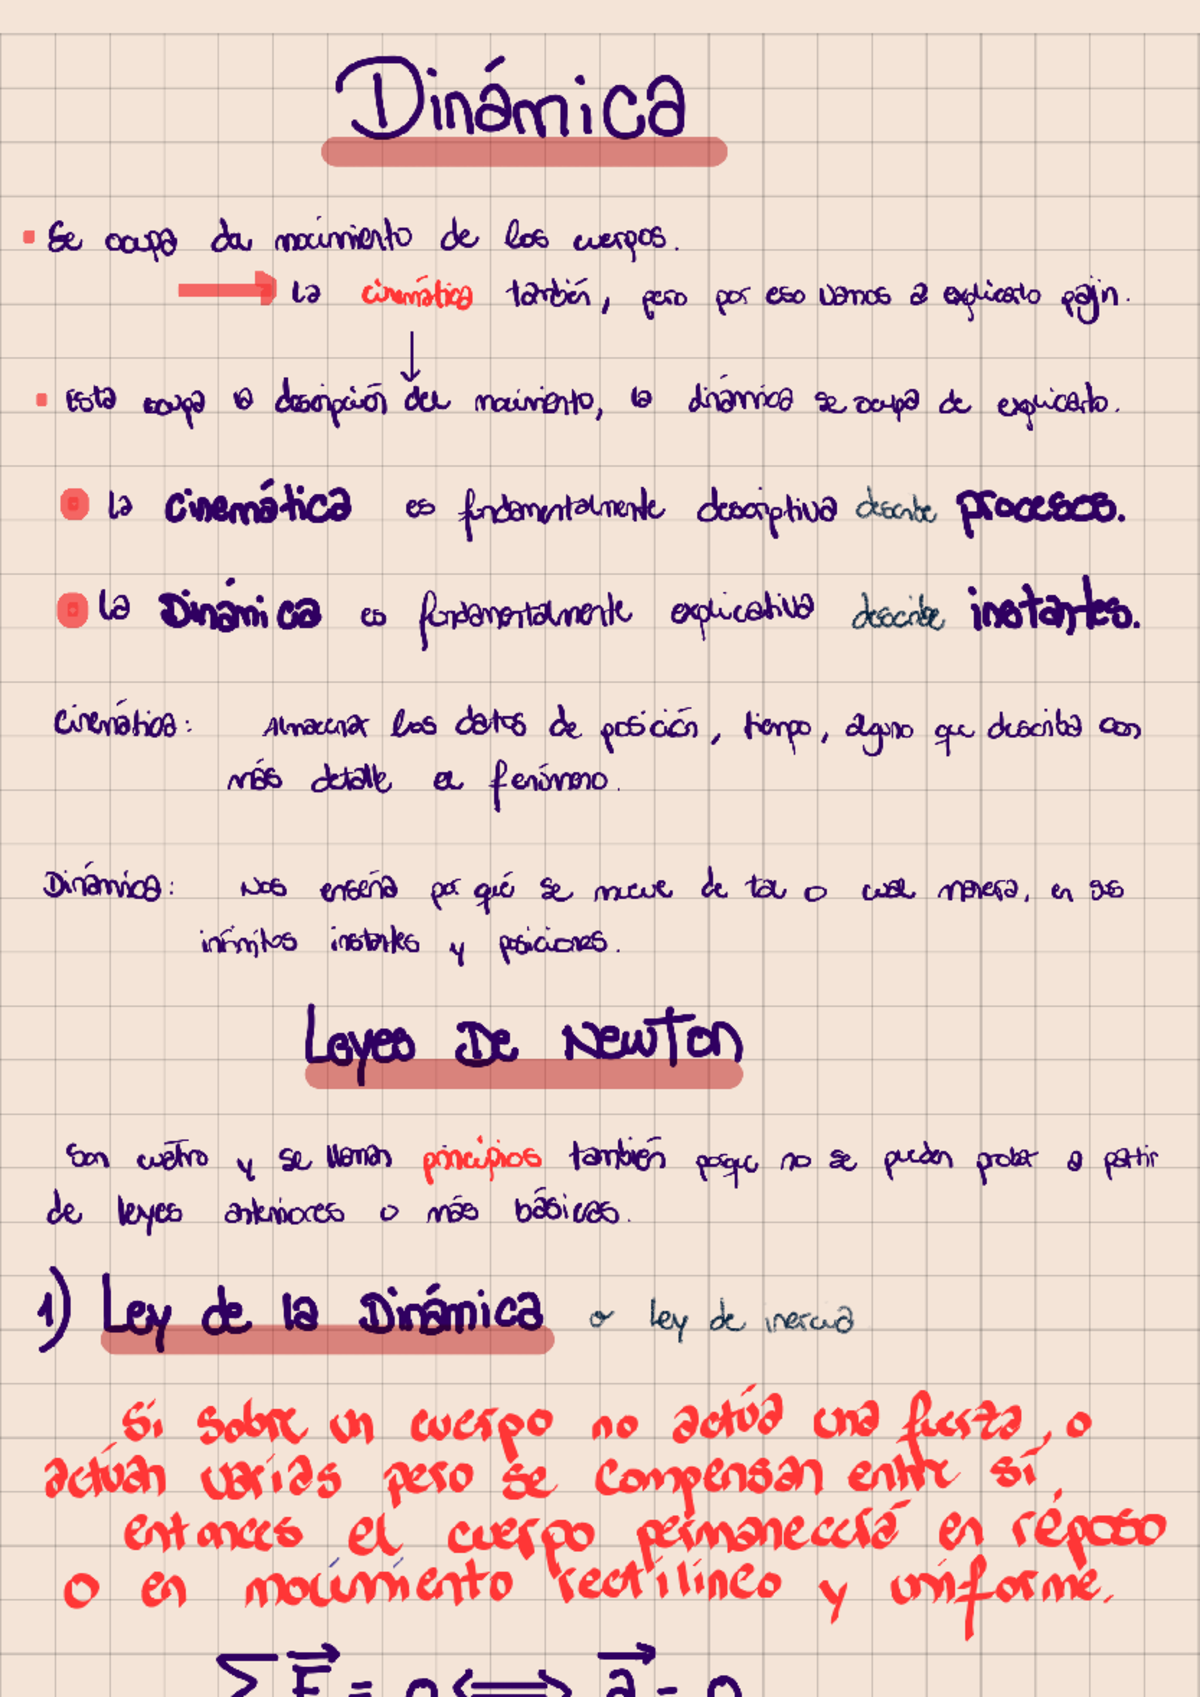 Dinámica
Se ocupa da movimiento de los cuerpos.
la cinemática también, pero por eso vamos a explicarlo
Esta ocupa la descripción del movimiento, la dinámica se ocupa de explicarlo.
la cinemática es fundamentalmente descriptiva describe procesos.
la Dinámica es fundamentalmente explicativa describe instantes.
Cinemática: Almacenar los datos de posición, tiempo, alguno que describa con
más detalle el fenómeno.
Dinámica: Nos enseña por qué se mueve de tal o cual manera, en sus
infinitos instantes y posiciones.
Leyes De Newton
Son cuatro y se llaman principios también porque no se pueden probar a partir
de leyes anteriores o más básicas.
1) Ley de la Dinámica o ley de inercia
Si sobre un cuerpo no actúa una fuerza, o
actúan varias pero se compensan entre sí,
entonces el cuerpo permanecerá en reposo
o en movimiento rectilíneo y uniforme.
∑ F⃗ = 0 ⟺ a⃗ = 0